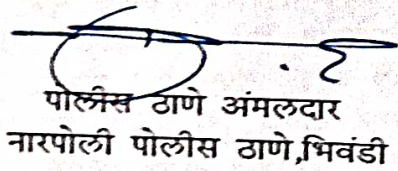 पोलीस ठाणे अंमलदार
नारपोली पोलीस ठाणे,भिवंडी